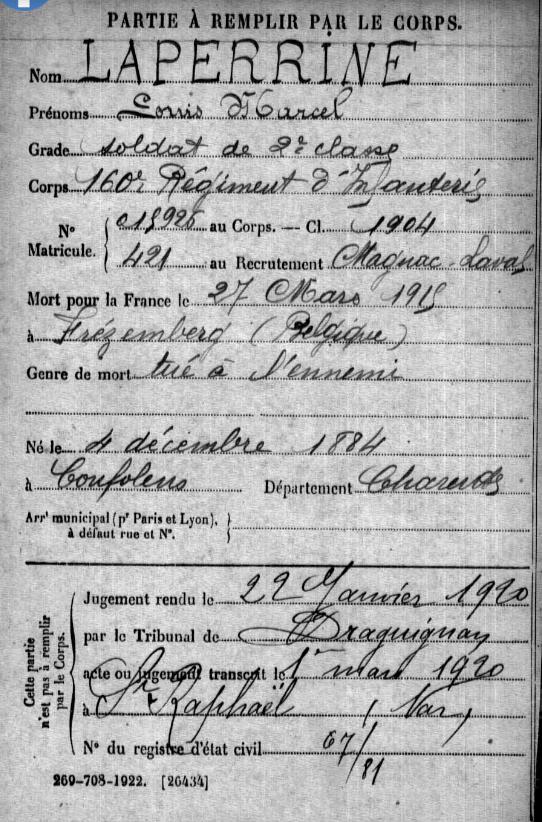 PARTIE À REMPLIR PAR LE CORPS.
Nom LAPERRINE
Prénoms Louis Marcel
Grade soldat de 2e classe
Corps 160e Régiment d'Infanterie
N° Matricule. { 015926 au Corps. — Cl. 1904
421 au Recrutement Magnac-Laval
Mort pour la France le 27 Mars 1915
à Frézemberg (Belgique)
Genre de mort tué à l'ennemi
Né le 4 décembre 1884
à Confolens Département Charente
Arrt municipal (pr Paris et Lyon), }
à défaut rue et N°.
Cette partie n'est pas à remplir par le Corps.
Jugement rendu le 22 Janvier 1920
par le Tribunal de Draguignan
acte ou jugement transcrit le 1r mars 1920
à St Raphaël (Var)
N° du registre d'état civil 67/81
269-708-1922. [26434]